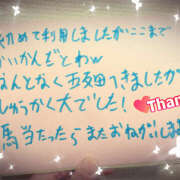 初めて利用しましたがここまで
いいかんどとわw
なんとなく五反田つきましたが
しゅうかく大でした!
Thank
馬当たったらまたおねがいしま